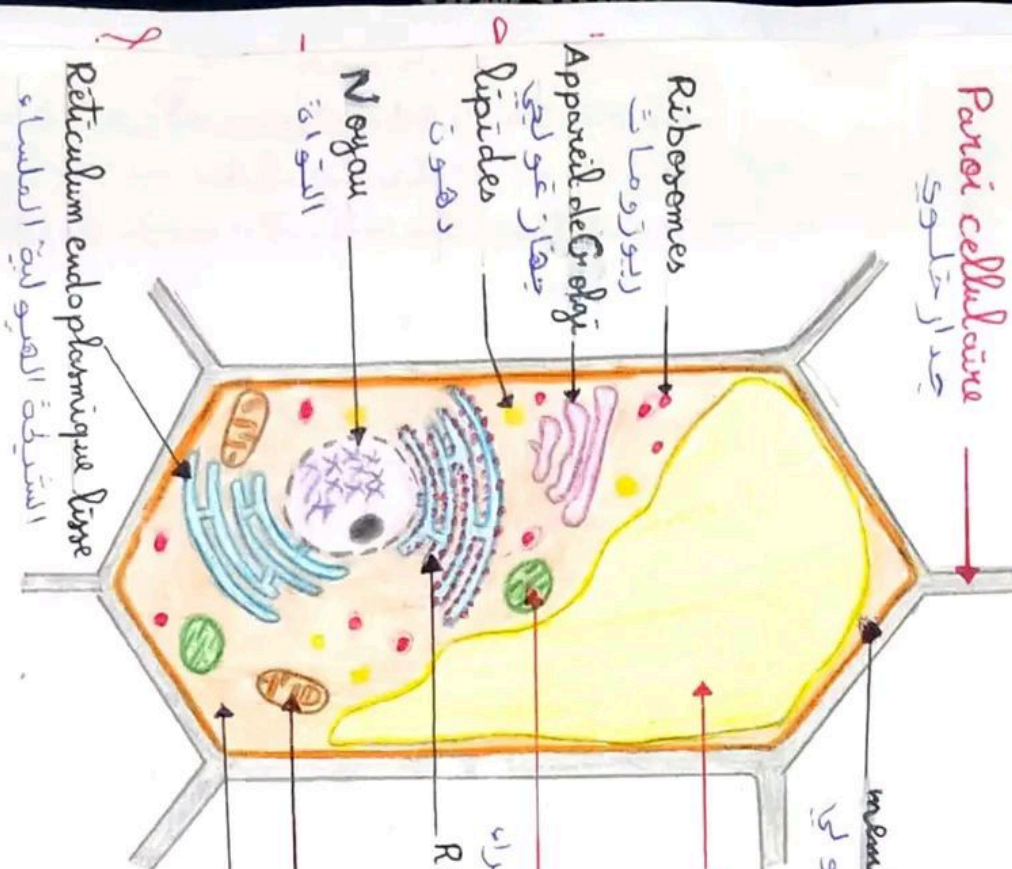 Paroi cellulaire
جدار خلوي
Ribosomes
ريبوزومات
Appareil de Golgi
جهاز غولجي
lipides
دهون
R
Noyau
النواة
Réticulum endoplasmique lisse
الشبكة الهيولية الملساء